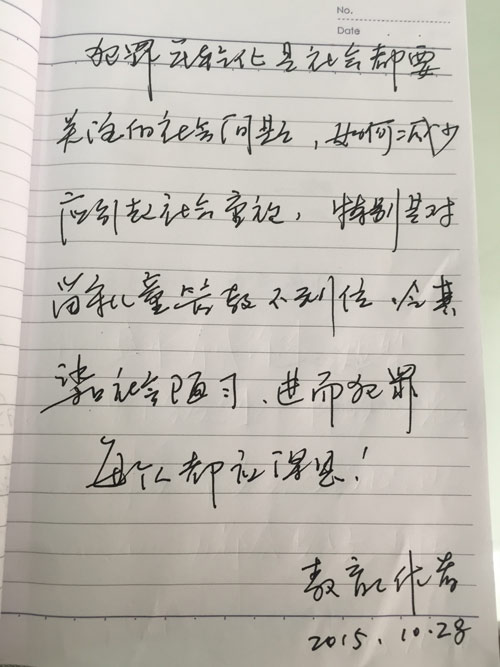 No.
Date
犯罪低龄化是社会都要
关注的社会问题，如何减少
应引起社会重视，特别是对
留守儿童管教不到位，令其
染社会陋习，进而犯罪
每个人都应深思！
教育工作者
2015.10.28